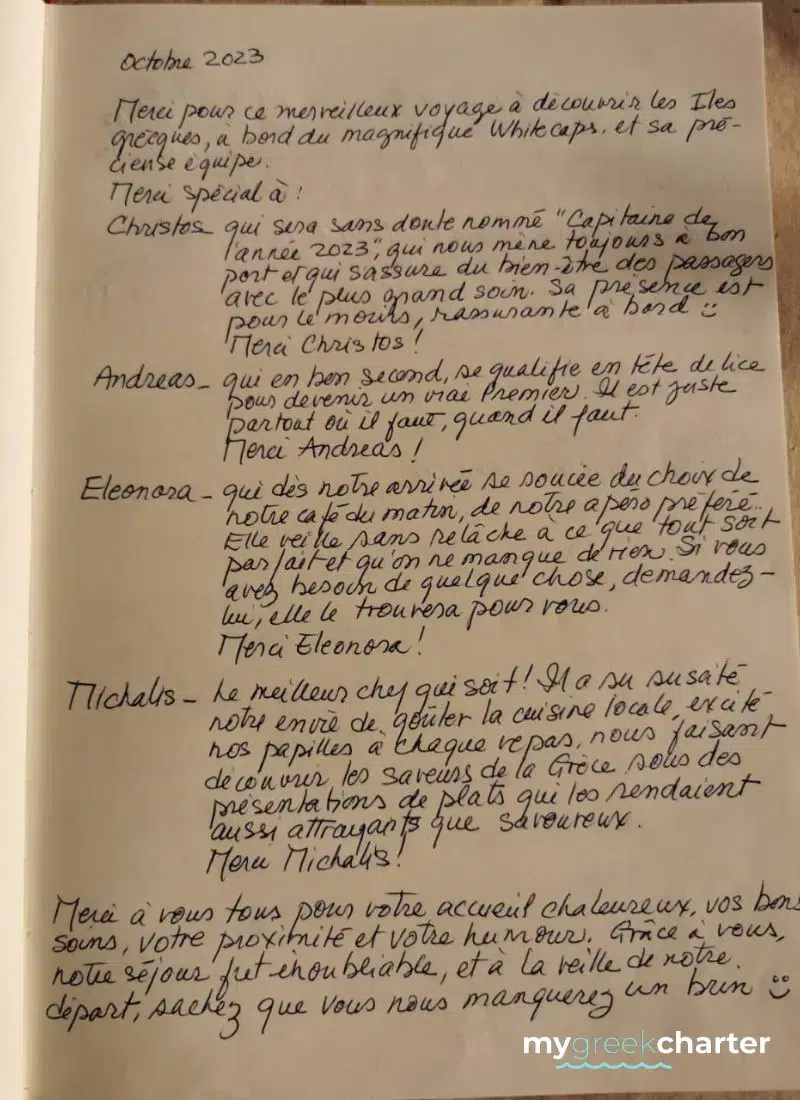 Octobre 2023
Merci pour ce merveilleux voyage à découvrir les Iles
grecques, à bord du magnifique Whitecaps, et sa pré-
cieuse équipe.
Merci spécial à :
Christos qui sera sans doute nommé "Capitaine de
l'année 2023", qui nous mène toujours à bon
port et qui s'assure du bien-être des passagers
avec le plus grand soin. Sa présence est
pour le moins, rassurante à bord :)
Merci Christos !
Andreas - qui en bon second, se qualifie en tête de lice
pour devenir un vrai Premier. Il est juste
partout où il faut, quand il faut.
Merci Andreas !
Eleonora - qui dès notre arrivée se soucie du choix de
notre café du matin, de notre apéro préféré..
Elle veille sans relâche à ce que tout soit
parfait et qu'on ne manque de rien. Si vous
avez besoin de quelque chose, demandez-
lui, elle le trouvera pour vous.
Merci Eleonora !
Michalis - Le meilleur chef qui soit ! Il a su suscité
notre envie de goûter la cuisine locale, excité
nos papilles à chaque repas, nous faisant
découvrir les saveurs de la Grèce sous des
présentations de plats qui les rendaient
aussi attrayants que savoureux.
Merci Michalis !
Merci à vous tous pour votre accueil chaleureux, vos bons
soins, votre proximité et votre humour. Grâce à vous,
notre séjour fut inoubliable, et à la veille de notre
départ, sachez que vous nous manquerez un brin :)
mygreekcharter